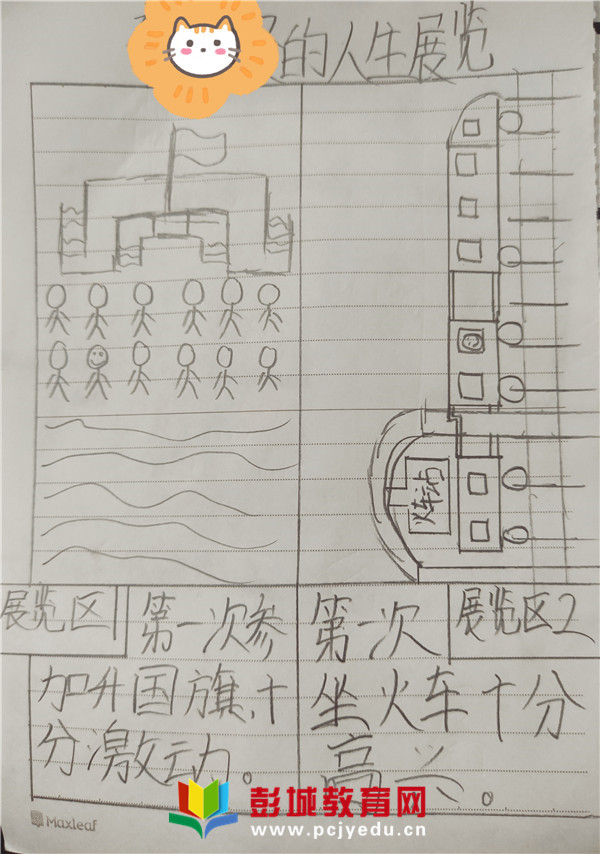 的人生展览
火车站
展览区1
第一次参
加升国旗,十
分激动。
第一次
展览区2
坐火车十分
高兴。
Maxleaf
彭城教育网
www.pcjyedu.cn